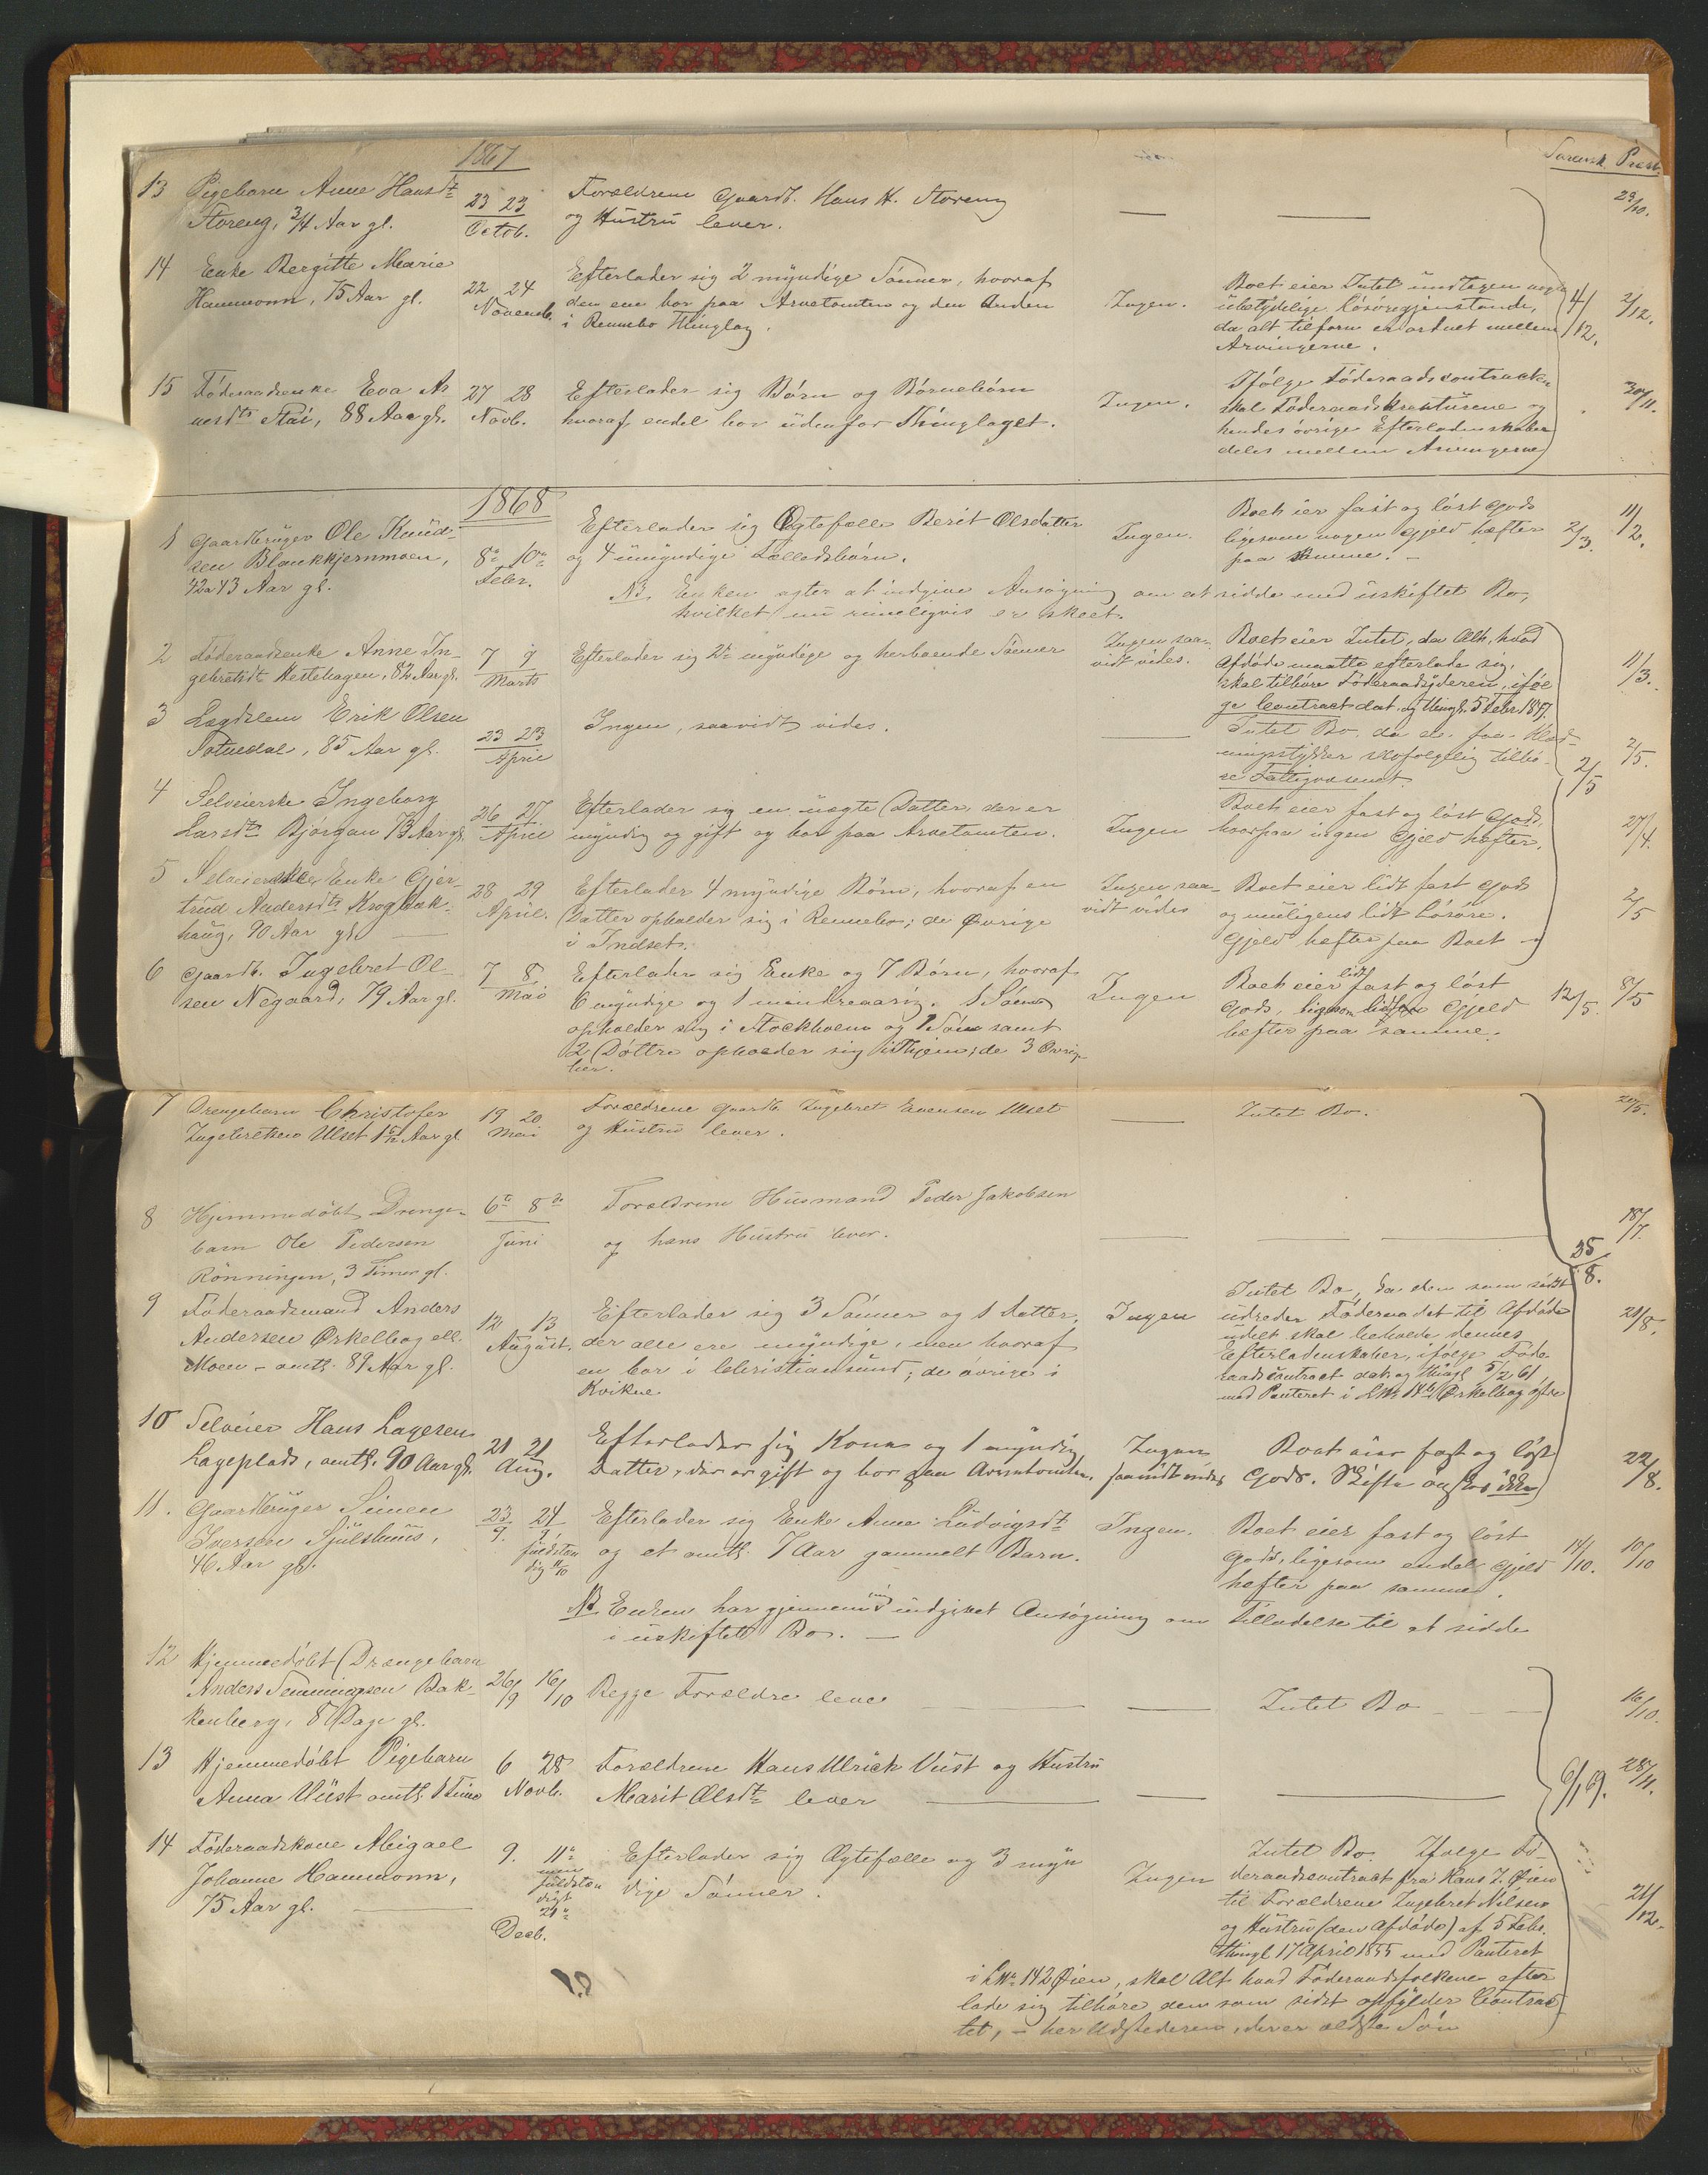 1867
Sorensk. Præst.
13 Pigebarn Anne Hansdtr
Storeng, 3/4 Aar gl.
23 23
Octob.
Forældrene Gaardb. Hans H. Storeng
og Hustru lever.
— —
23/10.
14 Enke Bergitte Marie
Hammonn, 75 Aar gl.
22 24
Novemb.
Efterlader sig 2 myndige Sønner, hvoraf
den ene bor paa Arvetomten og den Anden
i Rennebo Thinglag.
Ingen.
Boet eier Intet undtagen nogle
ubetydelige Løsøregjenstande,
da alt tilforn er ordnet mellem
Arvingerne.
4/12.
2/12.
15 Føderaadsenke Eva Ar
nesdtr Stai, 88 Aar gl.
27 28
Novb.
Efterlader sig Børn og Børnebørn
hvoraf endel bor udenfor Thinglaget.
Ingen.
Ifølge Føderaadscontracten
skal Føderaadskreaturene og
hendes øvrige Efterladenskaber
deles mellem Arvingerne
30/11.
1868
1 Gaardbruger Ole Knud-
sen Blankkjernmoen,
42 a 43 Aar gl.
8de 10de
Febr.
Efterlader sig Ægtefælle Berit Olsdatter
og 4 umyndige Fælledsbørn.
Ingen.
Boet eier fast og løst Gods
ligesom nogen Gjeld hæfter
paa samme. —
2/3.
11/2.
NB. Enken agter at indgive Ansøgning om at sidde med uskiftet Bo,
hvilket nu rimeligvis er skeet.
2 Føderaadsenke Anne In-
gebretsdtr Hestehagen, 82 Aar gl.
7 9
Marts
Efterlader sig 2de myndige og herboende Sønner
Ingen saa-
vidt vides.
Boet eier Intet, da Alt, hvad
Afdøde maatte efterlade sig,
skal tilhøre Føderaadsyderen, iføl
ge Contract dat. og thingl. 5 Febr. 1857.
11/3.
3 Lægdslem Erik Olsen
Sætnedal, 85 Aar gl.
23 23
April
Ingen, saavidt vides.
—
Intet Bo, da de faa Klæd-
ningsstykker selvfølgelig tilhø-
re Fattigvæsenet.
2/5
2/5.
4 Selveierske Ingeborg
Larsdtr Bjørgan 73 Aar gl.
26 27
April
Efterlader sig en uægte Datter, der er
myndig og gift og bor paa Arvetomten.
Ingen
Boet eier fast og løst Gods,
hvorpaa ingen Gjeld hæfter.
27/4.
5 Selveierske Enke Gjer-
trud Andersdtr Krogbak-
haug, 90 Aar gl. —
28 29
April.
Efterlader 4 myndige Børn, hvoraf en
Datter opholder sig i Rennebo; de Øvrige
i Indset.
Ingen saa-
vidt vides
Boet eier lidt fast Gods
og muligens lidt Løsøre.
Gjeld hæfter paa Boet —
2/5
6 Gaardb. Ingebret Ol-
sen Negaard, 79 Aar gl.
7 8
Mai
Efterlader sig Enke og 7 Børn, hvoraf
6 myndige og 1 mindreaarig. 1 Søn
opholder sig i Stockholm og 1 Søn samt
2 Døttre opholder sig i Thjem; de 3 Øvrige
her.
Ingen
Boet eier lidt fast og løst
Gods, ligesom lidt Gjeld
hæfter paa samme.
12/5.
8/5
7 Drengebarn Christofer
Ingebretsen Ulset 1 5/12 Aar gl.
19 20
Mai
Forældrene Gaardb. Ingebret Evensen Ulset
og Hustru lever.
—
Intet Bo.
20/5.
8 Hjemmedøbt Drenge-
barn Ole Pedersen
Rönningen, 3 Timer gl.
6te 8de
Juni
Forældrene Husmand Peder Jakobsen
og hans Hustru lever.
— — —
25/8.
18/7.
9 Føderaadsmand Anders
Andersen Ørkelbog ell.
Moen – omtr. 89 Aar gl.
12 13
August.
Efterlader sig 3 Sønner og 1 Datter,
der alle ere myndige, men hvoraf
en bor i Christiansund; de øvrige i
Kvikne
Ingen
Intet Bo, da den som sidst
udreder Føderaadet til Afdøde
udelt skal beholde dennes
Efterladenskaber, ifølge Føde
raadscontract dat. og thingl. 5/2 61
med Panteret i LNr. 14b Ørkelbog øfre
21/8.
10 Selveier Hans Lagesen
Lageplads, omtr. 90 Aar gl.
21 21
Aug.
Efterlader sig Kone og 1 myndig
Datter, der er gift og bor paa Arvetomten.
Ingen
saavidt vides
Boet eier fast og løst
Gods. Skifte ønskes ikke
22/8.
11. Gaardbruger Simen
Iversen Sjulshuus,
46 Aar gl.
23 24
9. 9
fuldstæn
dig 11/10
Efterlader sig Enke Anne Ludvigsdtr
og et omtr. 7 Aar gammelt Barn.
Ingen.
Boet eier fast og løst
Gods, ligesom endel Gjeld
hæfter paa samme.
14/10.
10/10
NB. Enken har gjennem mig indgivet Ansøgning om Tilladelse til at sidde
i uskiftet Bo. —
12 Hjemmedøbt Drengebarn
Anders Semmingsen Bak-
kenberg, 8 Dage gl.
26/9 16/10
Begge Forældre lever
— —
Intet Bo — — —
16/10.
13 Hjemmedøbt Pigebarn
Anna Wüst omtr. 1 Time
6 28
Novb.
Forældrene Hans Ulrick Vüst og Hustru
Marit Olsdtr lever
— — —
6/1 69.
28/11.
14 Føderaadskone Abigael
Johanne Hammonn,
75 Aar gl. —
9. 11te
men
fuldstæn
digt
21de
Decb.
Efterlader sig Ægtefælle og 3 myn
dige Sønner.
Ingen
Intet Bo. Ifølge Fø-
deraadscontract fra Hans I. Øien
til Forældrene Ingebret Nilsen
og Hustru (den Afdøde) af 5 Febr.
thingl. 17 April 1855 med Panteret
i LNr. 142 Øien, skal Alt hvad Føderaadsfolkene efter
lade sig tilhøre dem som sidst opfylder Contrac
tet, – her Udstederen, der er ældste Søn
21/12.